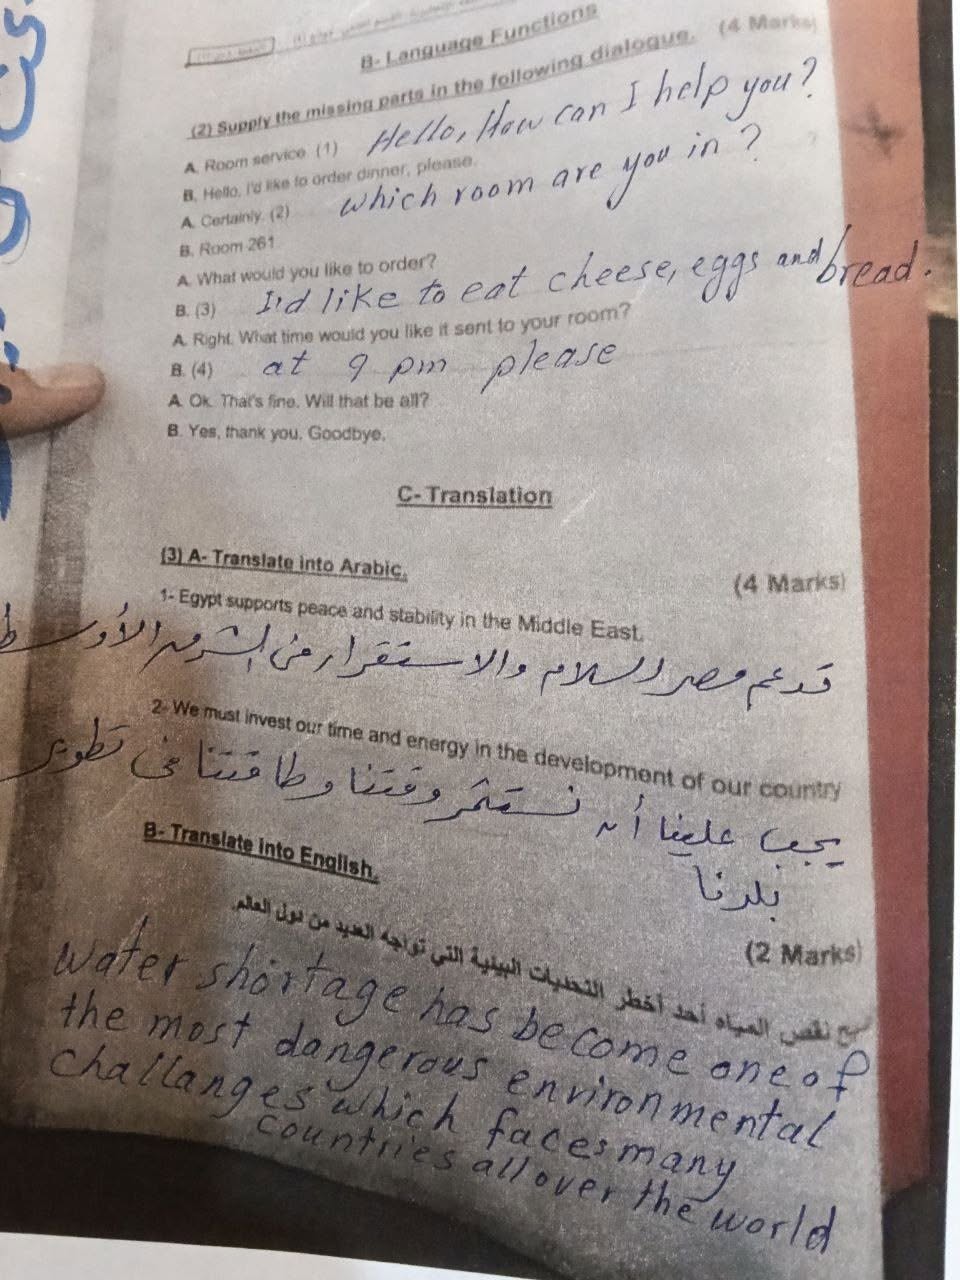 B- Language Functions
(2) Supply the missing parts in the following dialogue. (4 Marks)
A. Room service. (1) Hello, How can I help you?
B. Hello, I'd like to order dinner, please.
A. Certainly. (2) which room are you in?
B. Room 261.
A. What would you like to order?
B. (3) I'd like to eat cheese, eggs and bread.
A. Right. What time would you like it sent to your room?
B. (4) at 9 pm please
A. Ok. That's fine. Will that be all?
B. Yes, thank you. Goodbye.
C- Translation
(3) A- Translate into Arabic.
(4 Marks)
1- Egypt supports peace and stability in the Middle East.
تدعم مصر السلام والاستقرار فى الشرق الأوسط
2- We must invest our time and energy in the development of our country
يجب علينا أن نستثمر وقتنا وطاقتنا فى تطوير
بلدنا
B- Translate into English.
(2 Marks)
نقص المياه أحد أخطر التحديات البيئية التي تواجه العديد من دول العالم.
water shortage has become one of
the most dangerous environmental
challanges which faces many
countries all over the world